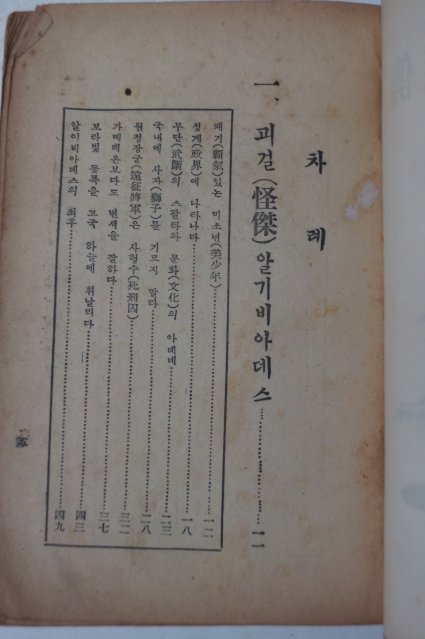 차례
一、괴걸(怪傑)알기비아데스……一一
패기(覇氣)있는 미소년(美少年)……一二
정계(政界)에 나타나다……一八
무단(武斷)의 스팔타와 문화(文化)의 아테네……二三
국내에 사자(獅子)를 기르지 말라……二八
원정장군(遠征將軍)은 사형수(死刑囚)……三二
가메레온보다도 변색을 잘하다……三七
보라빛 돛폭을 고국 하늘에 휘날리다……四三
알이비아데스의 최후……四九